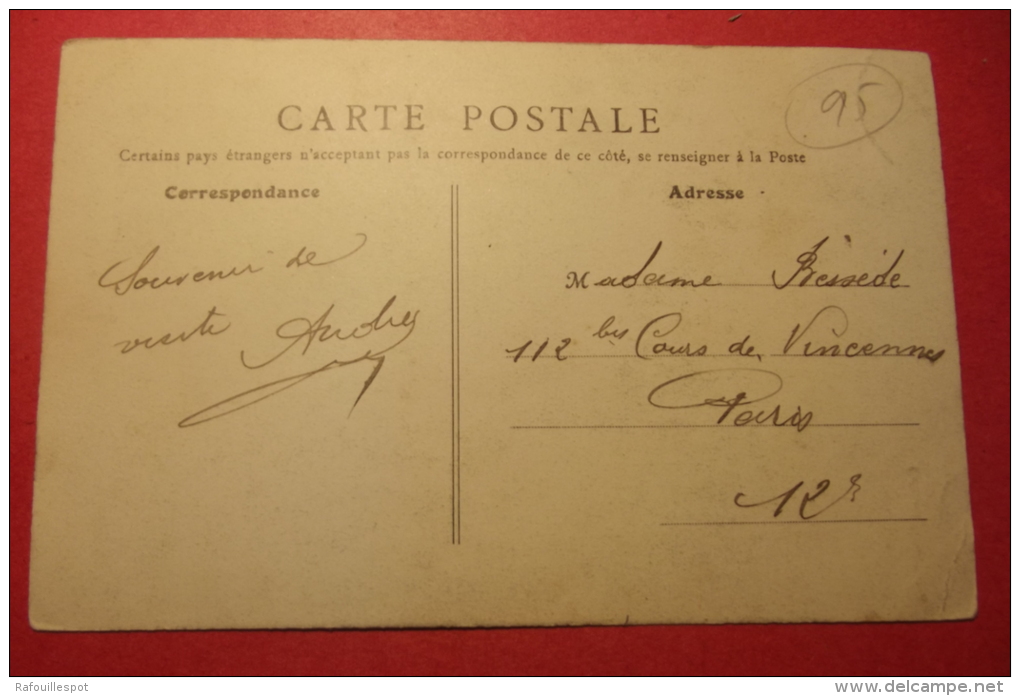 95
CARTE POSTALE
Certains pays étrangers n'acceptant pas la correspondance de ce côté, se renseigner à la Poste
Correspondance
Souvenir de
visite
Adresse
Madame
112 bis Cours de Vincennes
Paris
12e
Rafouillespot
www.delcampe.net